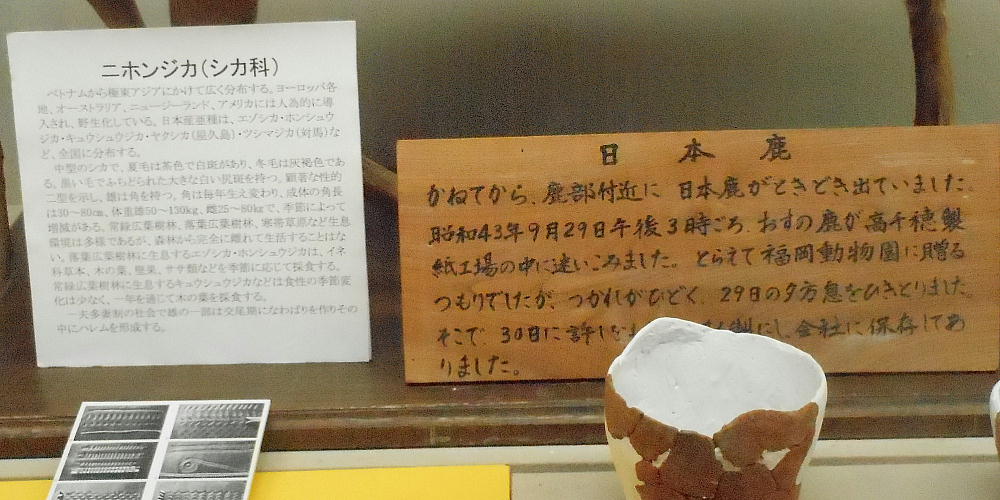 ニホンジカ(シカ科)
ベトナムから極東アジアにかけて広く分布する。ヨーロッパ各
地、オーストラリア、ニュージーランド、アメリカには人為的に導
入され、野生化している。日本産亜種は、エゾシカ・ホンシュウ
ジカ・キュウシュウジカ・ヤクシカ(屋久島)・ツシマジカ(対馬)な
ど、全国に分布する。
中型のシカで、夏毛は茶色で白斑があり、冬毛は灰褐色であ
る。黒い毛でふちどられた大きな白い尻斑を持つ。顕著な性的
二型を示し、雄は角を持つ。角は毎年生え変わり、成体の角長
は30～80cm、体重雄50～130kg、雌25～80kgで、季節によって
増減がある。常緑広葉樹林、落葉広葉樹林、寒帯草原など生息
環境は多様であるが、森林から完全に離れて生活することはな
い。落葉広葉樹林に生息するエゾシカ・ホンシュウジカは、イネ
科草本、木の葉、堅果、ササ類などを季節に応じて採食する。
常緑広葉樹林に生息するキュウシュウジカなどは食性の季節変
化は少なく、一年を通じて木の葉を採食する。
一夫多妻制の社会で雄の一部は交尾期になわばりを作りその
中にハレムを形成する。
日本鹿
かねてから、鹿部付近に 日本鹿がときどき出ていました。
昭和43年9月29日午後3時ごろ、おすの鹿が高千穂製
紙工場の中に迷いこみました。とらえて福岡動物園に贈る
つもりでしたが、つかれがひどく、29日の夕方息をひきとりました。
そこで、30日に許しを 制にし、会社に保存してあ
りました。